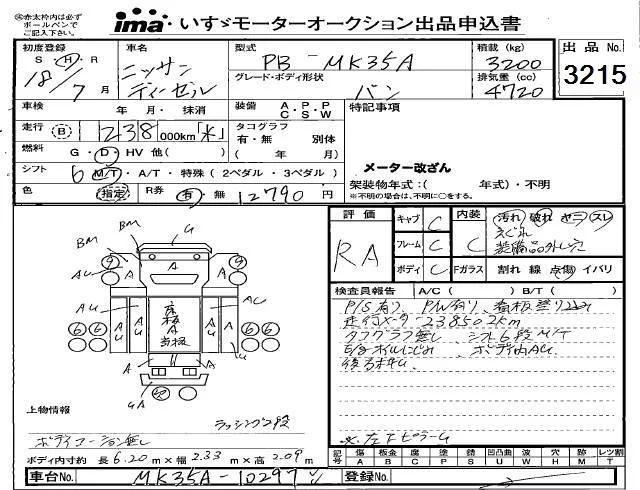 ⚠赤太枠内は必ず
ボールペンで
ご記入下さい。
ima いすゞモーターオークション出品申込書
初度登録
S H・R
18/7月
車名
ニッサン
ディーゼル
型式
PB-MK35A
グレード・ボディ形状
バン
積載(kg)
3200
排気量(cc)
4720
出品No.
3215
車検 年・月・抹消
装備 A・P・P
C S W
特記事項
走行 B 238 000km「水」
タコグラフ
有・無 別体
( 年 月)
燃料 G・D・HV 他( )
メーター改ざん
シフト 6 M/T・A/T・特殊(2ペダル・3ペダル)
架装物年式:( 年式)・不明
※不明の場合は、不明に○をする。
色 指定 R券 有・無 12790円
評価
RA
キャブ C
フレーム C
ボディ C
内装 C
Fガラス
汚れ 破れ ヤニ スレ
えぐれ
装備品外し穴
割れ 線 点傷 イバリ
検査員報告 A/C( ) B/T( )
P/S有り P/W有り
走行メーター238502km
タコグラフ無し シフト6段M/T
E/gオイルにじみ ボディ内AU
BM
BM
G
AU
A
A
AU
AC
AU
A
U
A
A
GA
6 6
6 6
上物情報
ラッシング2段
ボディ内寸約 長6.20m×幅2.33m×高2.09m
記号 傷A 板金B 腐C 塗P 錆S 凹凸曲U 波W 穴H 跡M レツ割T
車台No. MK35A-10297
登録No.